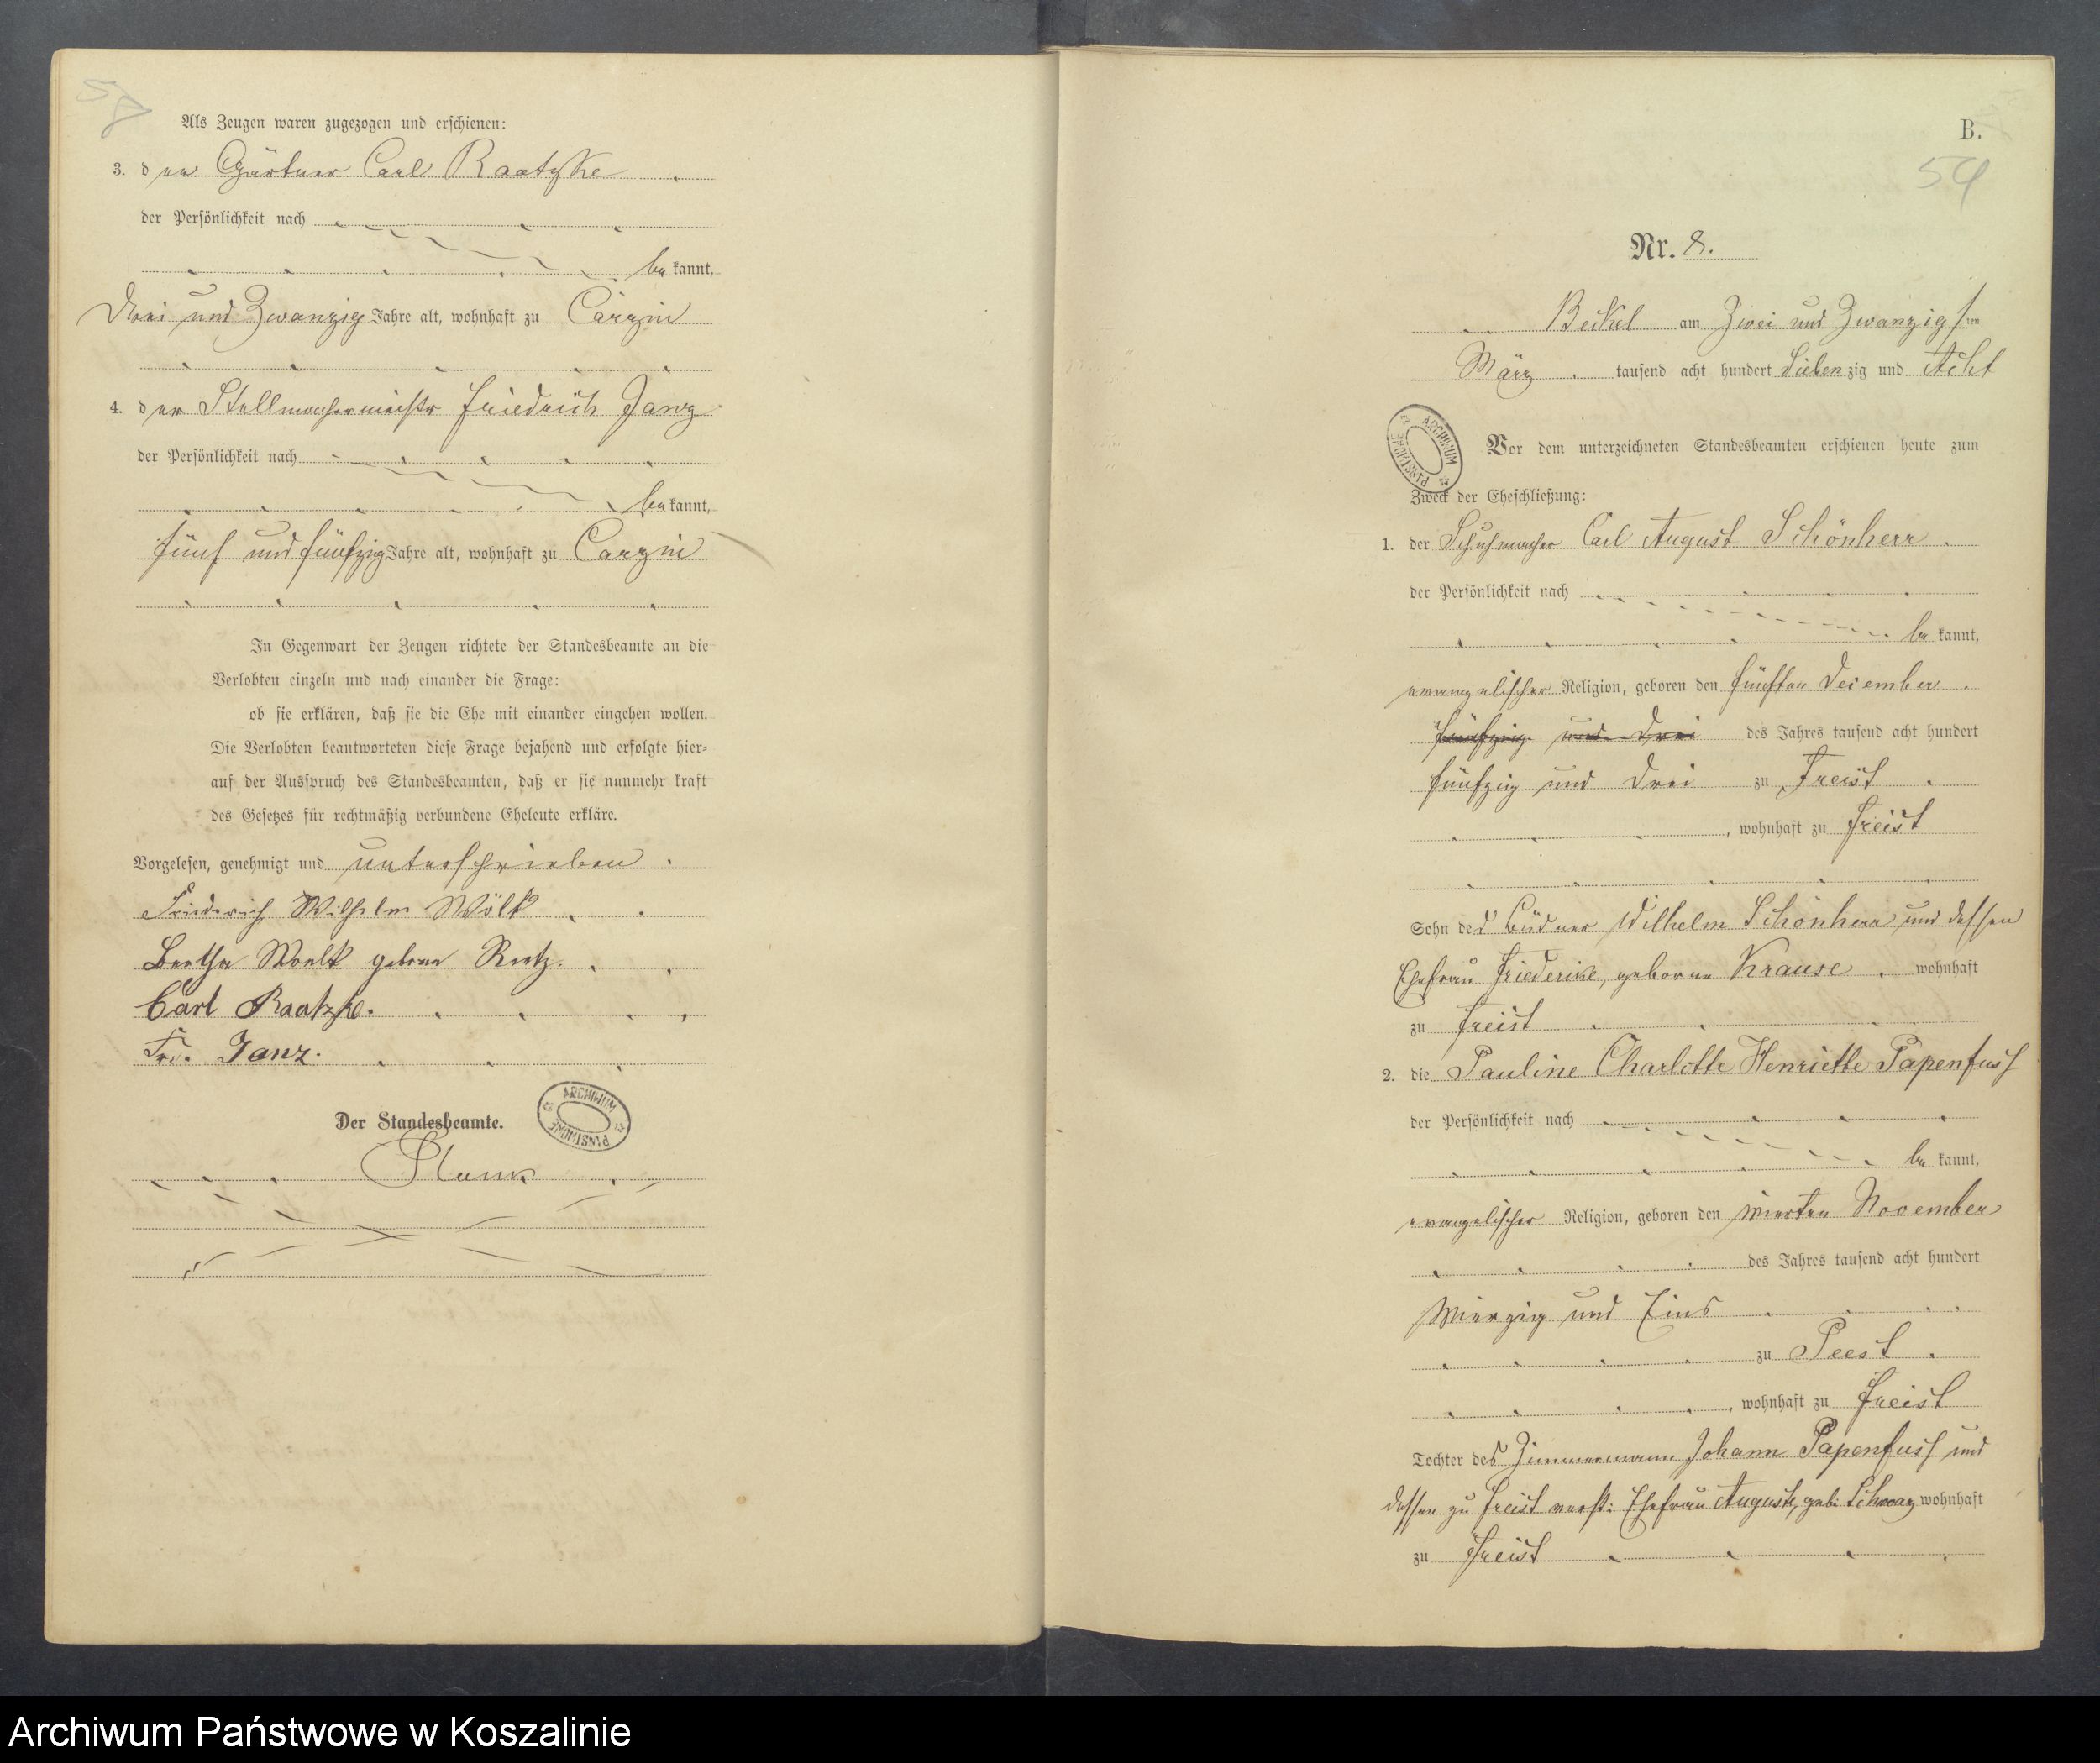 58
Als Zeugen waren zugezogen und erschienen:
3. der Gärtner Carl Raatzke
der Persönlichkeit nach
be kannt,
Drei und Zwanzig Jahre alt, wohnhaft zu Carzin
4. der Stellmachermeister Friedrich Janz
der Persönlichkeit nach
be kannt,
fünf und fünfzig Jahre alt, wohnhaft zu Carzin
In Gegenwart der Zeugen richtete der Standesbeamte an die
Verlobten einzeln und nach einander die Frage:
ob sie erklären, daß sie die Ehe mit einander eingehen wollen.
Die Verlobten beantworteten diese Frage bejahend und erfolgte hier-
auf der Ausspruch des Standesbeamten, daß er sie nunmehr kraft
des Gesetzes für rechtmäßig verbundene Eheleute erkläre.
Vorgelesen, genehmigt und unterschrieben.
Friederich Wilhelm Wölk
Bertha Woelk geborne
Carl Raatzke.
Frd. Janz.
Der Standesbeamte.
ARCHIWUM PAŃSTWOWE
B.
59
Nr. 8.
Beckel am Zwei und Zwanzigsten
März tausend acht hundert Siebenzig und Acht
ARCHIWUM PAŃSTWOWE
Vor dem unterzeichneten Standesbeamten erschienen heute zum
Zweck der Eheschließung:
1. der Schuhmacher Carl August Schönherr.
der Persönlichkeit nach
be kannt,
evangelischer Religion, geboren den fünften December.
fünfzig und drei des Jahres tausend acht hundert
fünfzig und drei zu Freist.
, wohnhaft zu Freist
Sohn des Büdner Wilhelm Schönherr und dessen
Ehefrau Friederike, geborne Krause. wohnhaft
zu Freist
2. die Pauline Charlotte Henriette Papenfuss
der Persönlichkeit nach
be kannt,
evangelischer Religion, geboren den vierten November
des Jahres tausend acht hundert
Vierzig und Eins
zu Peest.
, wohnhaft zu Freist
Tochter des Zimmermann Johann Papenfuss und
dessen zu Freist verst: Ehefrau Auguste, geb: wohnhaft
zu Freist
Archiwum Państwowe w Koszalinie